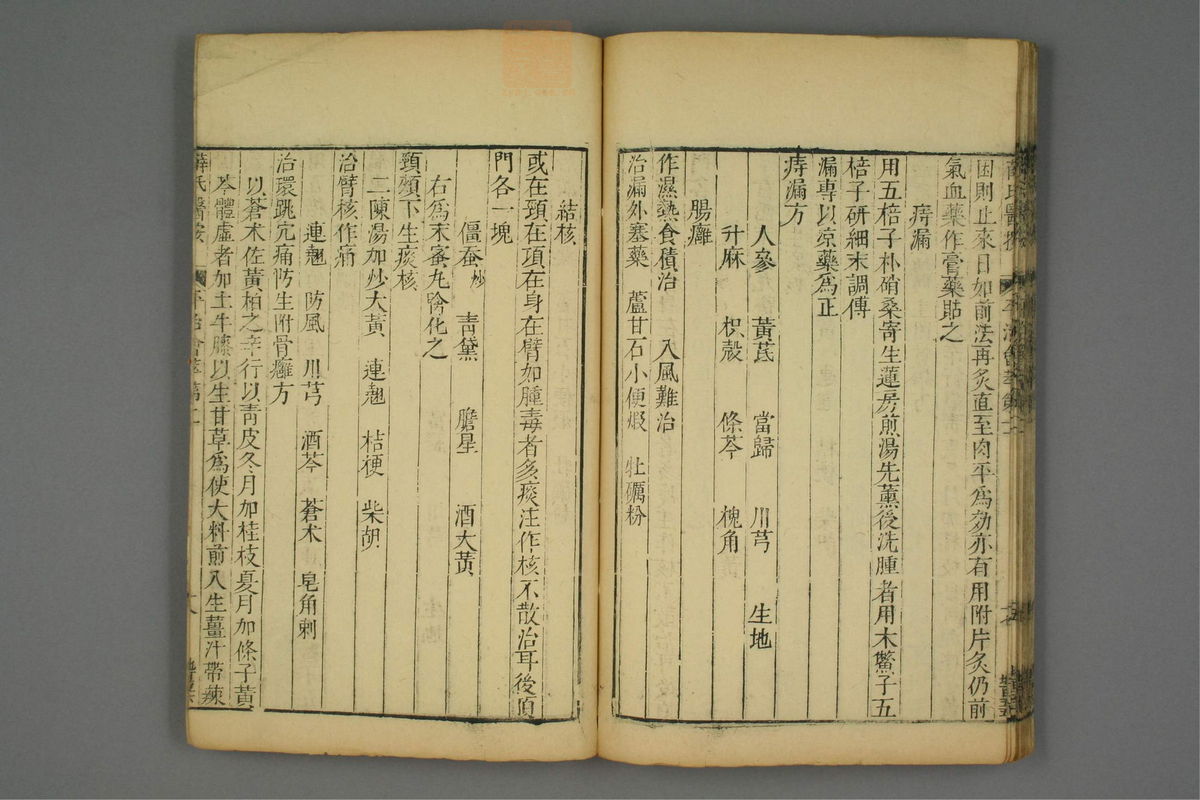 困則止來日如前法再灸直至肉平為効亦有用附片灸仍前
氣血藥作膏藥貼之
痔漏
用五棓子朴硝桑寄生蓮房煎湯先薰後洗腫者用木鱉子五
棓子研細末調傅
漏專以凉藥為正
痔漏方
人參 黃芪 當歸 川芎 生地
升麻 枳殼 條芩 槐角
腸癰
作濕熱食積治 入風難治
治漏外塞藥 蘆甘石小便煅 牡礪粉
結核
或在頸在項在身在臂如腫毒者多痰注作核不散治耳後項
門各一塊
僵蚕炒 青黛 膽星 酒大黃
右為末蜜丸噙化之
頸頰下生痰核
二陳湯加炒大黃 連翹 桔梗 柴胡
治臂核作痛
連翹 防風 川芎 酒芩 蒼术 皂角刺
治環跳穴痛防生附骨癰方
以蒼术佐黃柏之辛行以青皮冬月加桂枝夏月加條子黃
芩體虛者加土牛膝以生甘草為使大料煎入生薑汁帶辣
薛氏醫案 平治會萃第二